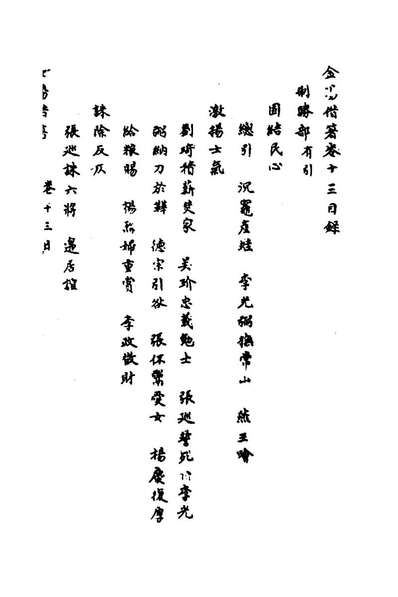 金湯借箸卷十三目錄
制勝部有引
固結民心
總引 沉竈產蛙 李光弼撫常山 燕王噲
激揚士氣
劉琦積薪焚家 吳玠忠義勉士 張巡誓死 李光
弼納刀於鞾 德宗引咎 張伾鬻愛女 楊慶復厚
給粮賜 楊烈婦重賞 李政散財
誅除反仄
張巡誅六將 馬
卷十三目